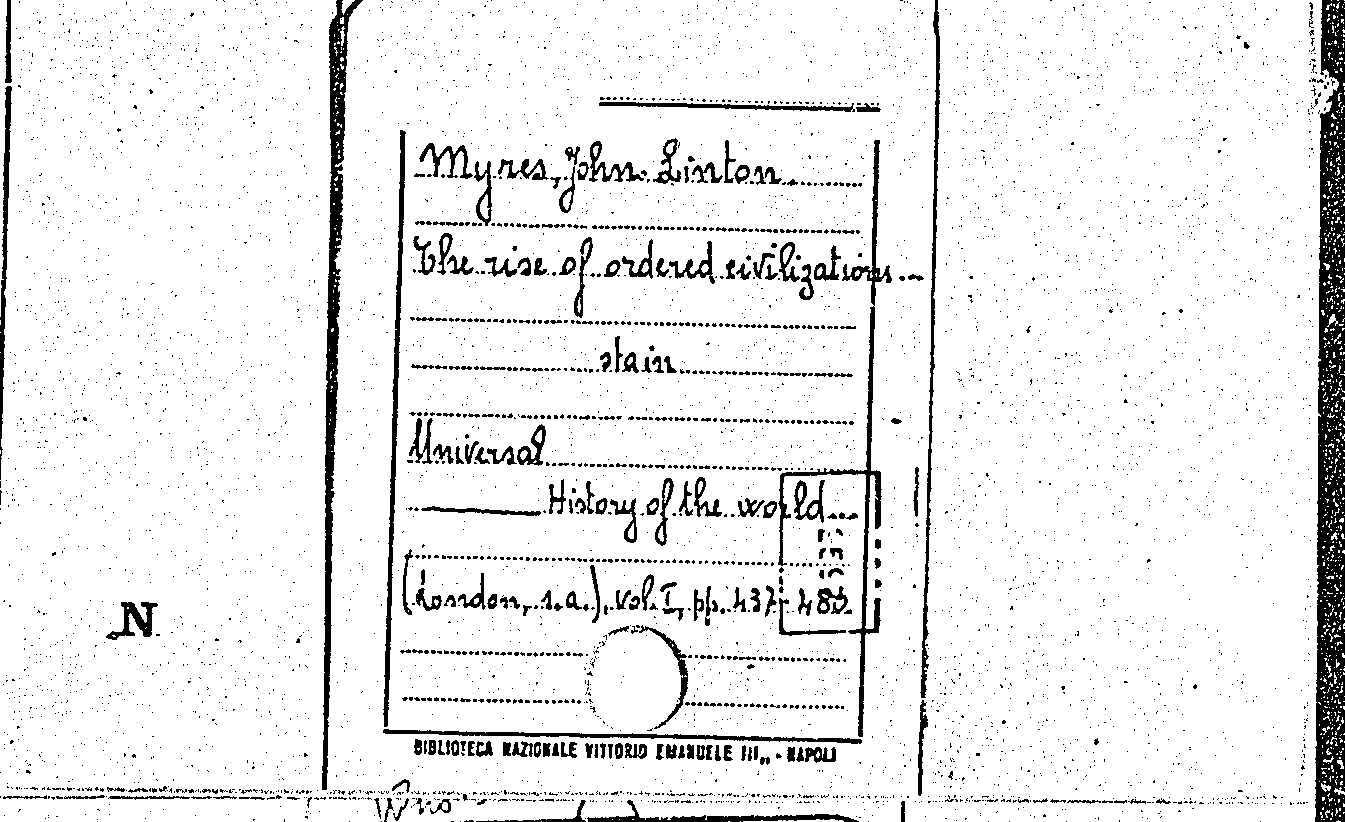 Myres, John Linton.
The rise of ordered civilizations...
stain
Universal
——— History of the world...
(London, s.a.), vol. I, pp. 437-485.
N
BIBLIOTECA NAZIONALE VITTORIO EMANUELE III„ - NAPOLI